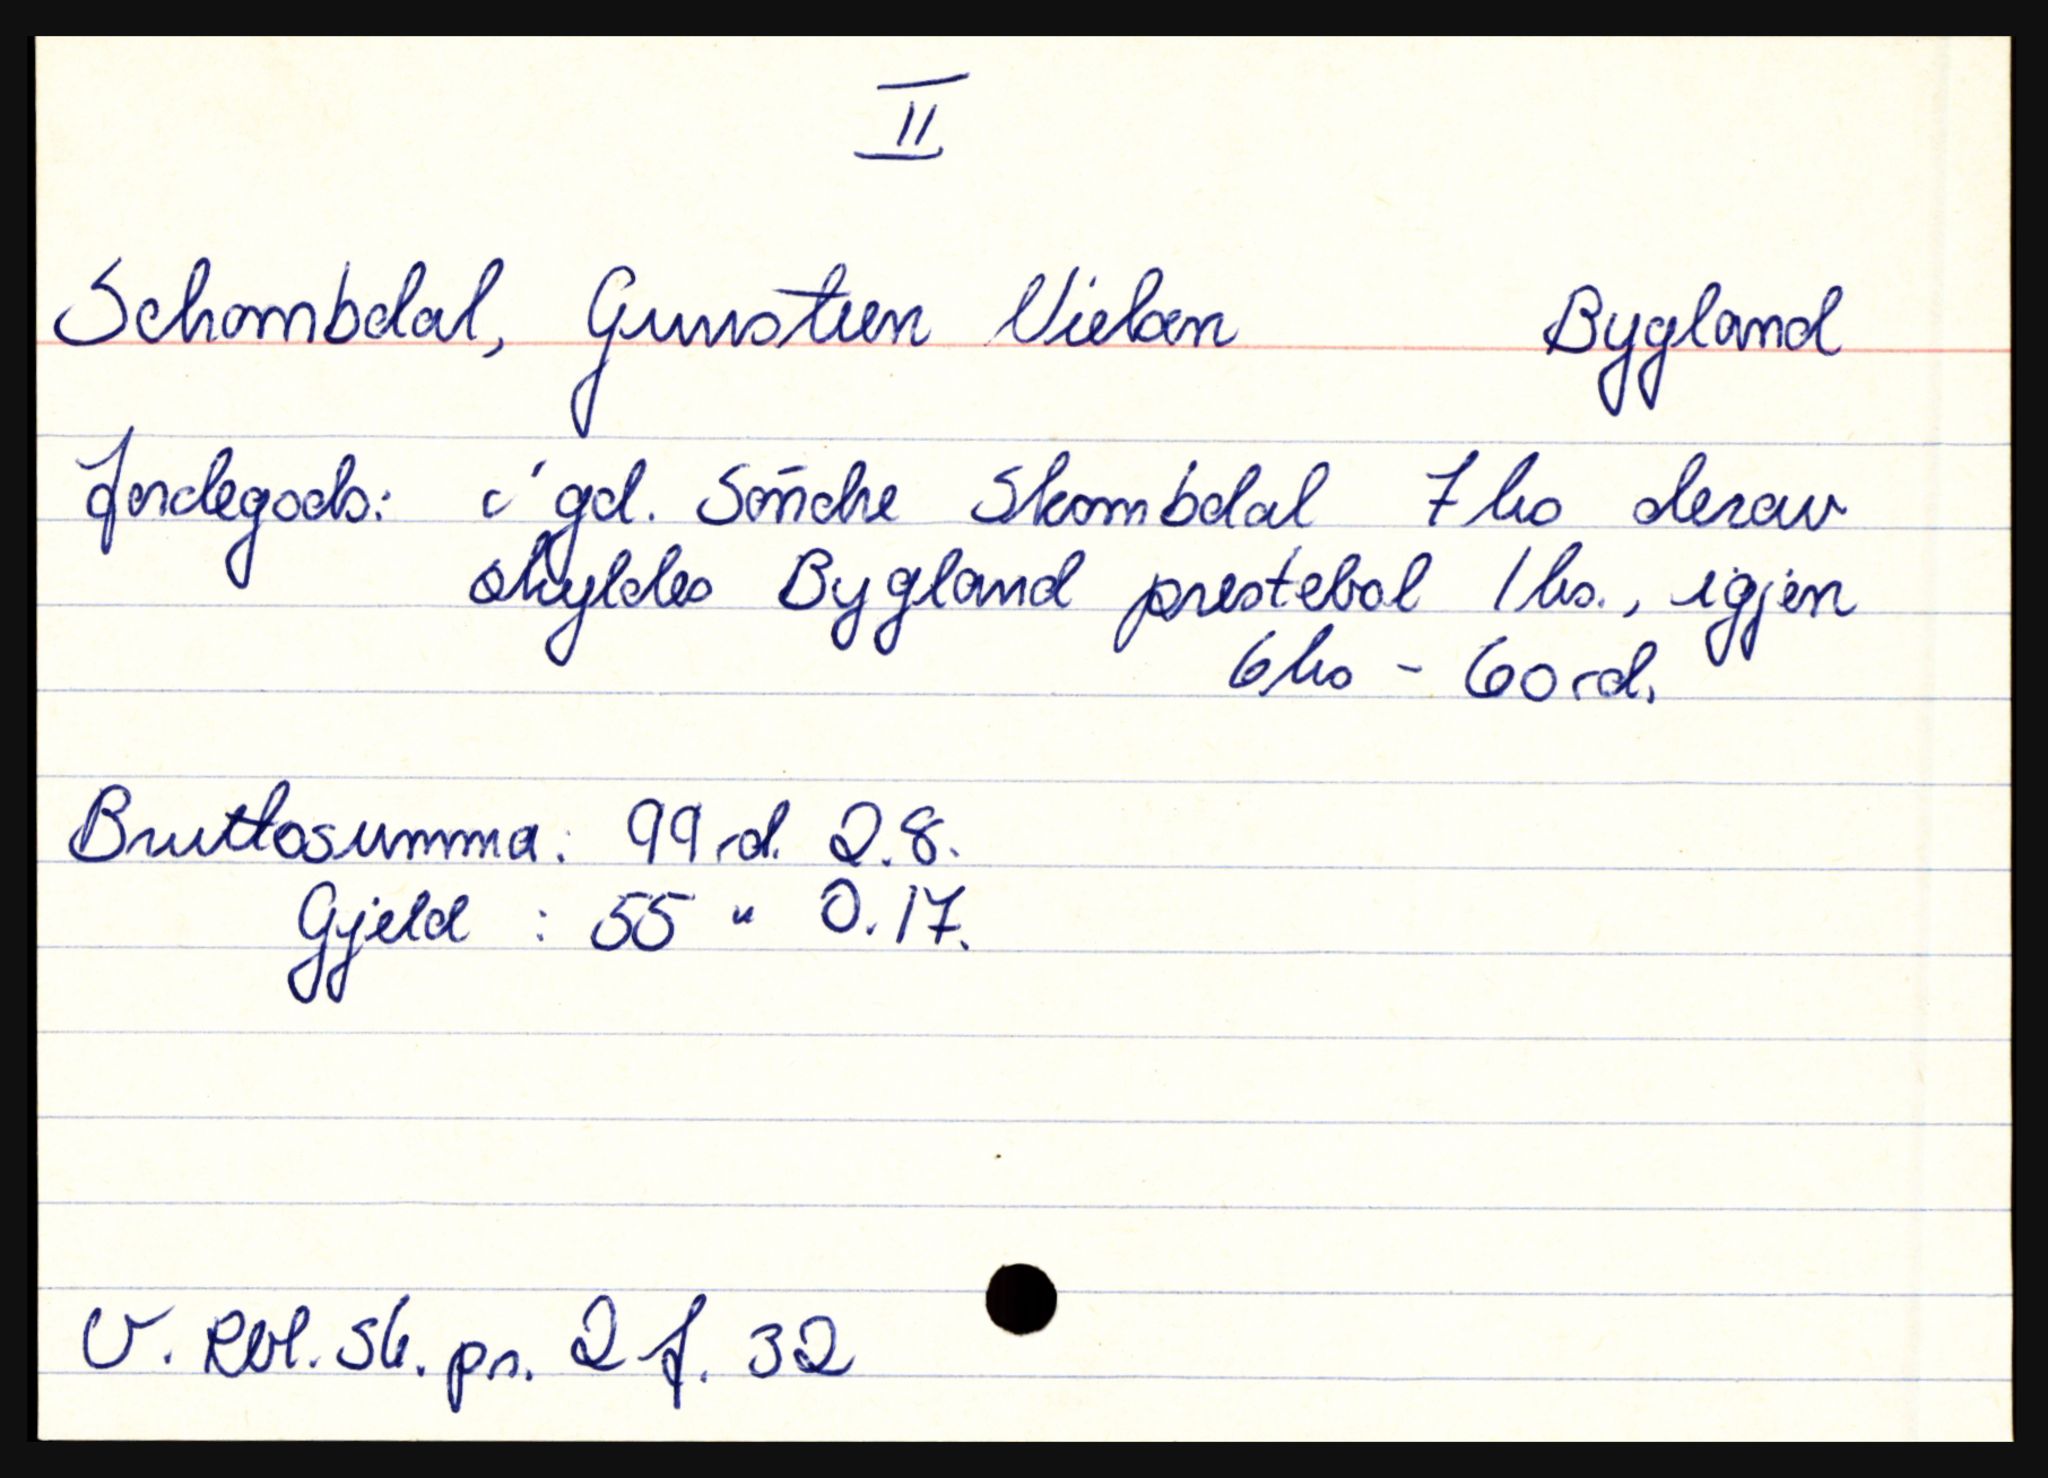 II
Schombdal, Gunsten Vielsen Bygland
Jordegods: i gd. Søndre Skombdal 7 hs derav
skyldes Bygland prestebol 1 hs., igjen
6 hs - 60 rd.
Bruttosumma: 99 rd. 2.8.
Gjeld : 55 " 0.17.
V. Rbl. Sk. pr. 2 f. 32